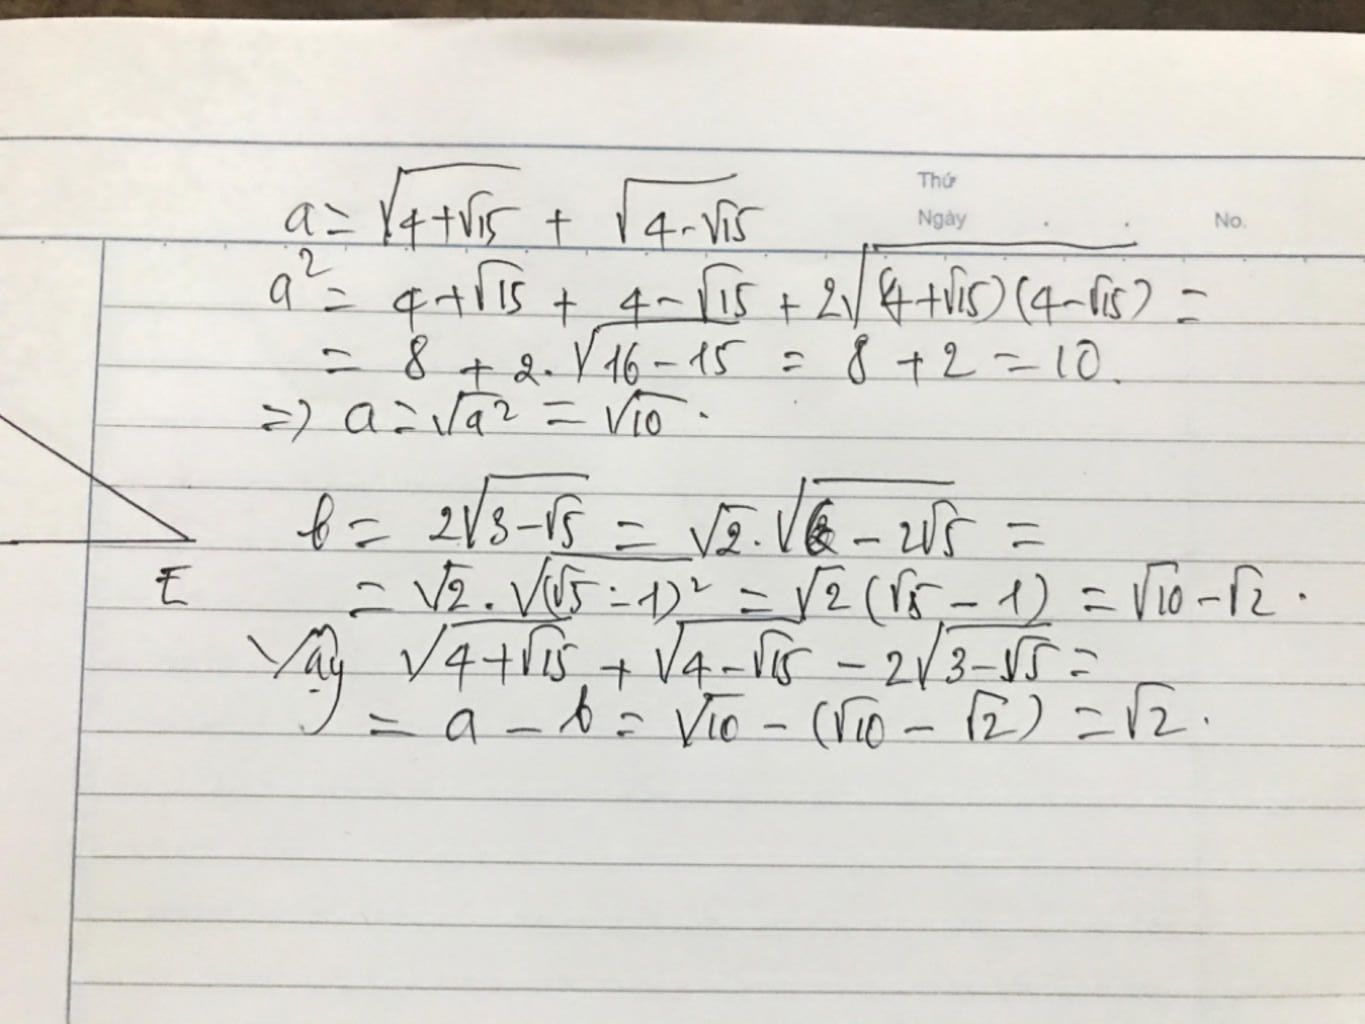 Thứ
Ngày . . No.
a = √(4+√15) + √(4-√15)
a² = 4+√15 + 4-√15 + 2√((4+√15)(4-√15)) =
= 8 + 2.√(16-15) = 8 + 2 = 10.
=> a = √a² = √10.
b = 2√(3-√5) = √2.√(6-2√5) =
= √2.√((√5-1)²) = √2(√5-1) = √10-√2.
E
Vậy √(4+√15) + √(4-√15) - 2√(3-√5) =
= a - b = √10 - (√10 - √2) = √2.